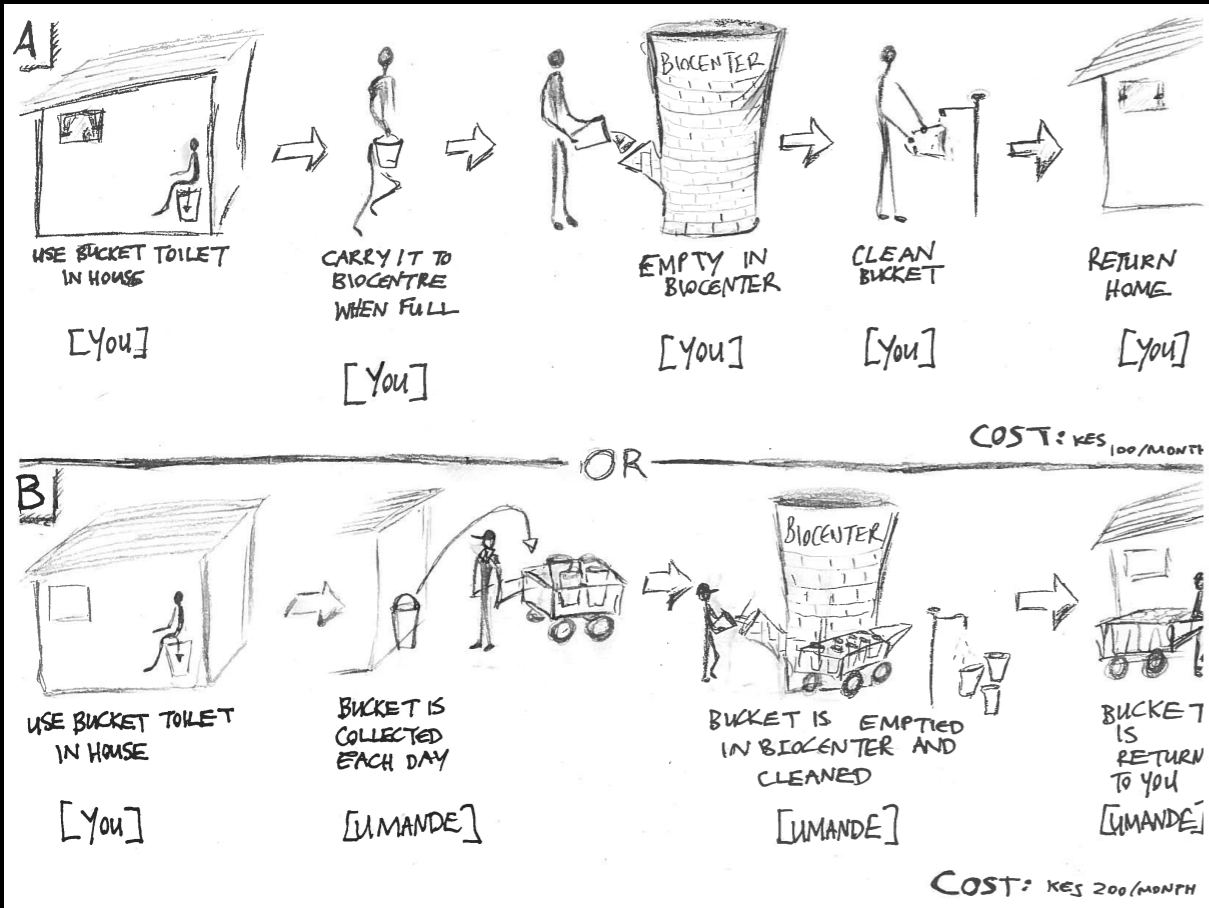 A
BIOCENTER
USE BUCKET TOILET
IN HOUSE
[YOU]
CARRY IT TO
BIOCENTRE
WHEN FULL
[YOU]
EMPTY IN
BIOCENTER
[YOU]
CLEAN
BUCKET
[YOU]
RETURN
HOME
[YOU]
COST: KES 100/MONTH
OR
B
BIOCENTER
USE BUCKET TOILET
IN HOUSE
[YOU]
BUCKET IS
COLLECTED
EACH DAY
[UMANDE]
BUCKET IS EMPTIED
IN BIOCENTER AND
CLEANED
[UMANDE]
BUCKET
IS
RETURN
TO YOU
[UMANDE]
COST: KES 200/MONTH